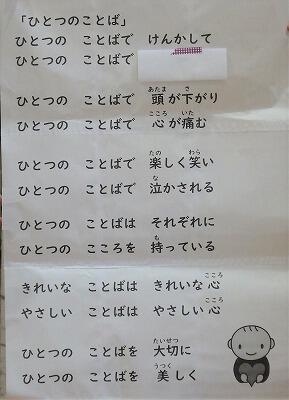 「ひとつのことば」
ひとつの ことばで けんかして
ひとつの ことばで
ひとつの ことばで 頭が下がり
ひとつの ことばで 心が痛む
ひとつの ことばで 楽しく笑い
ひとつの ことばで 泣かされる
ひとつの ことばは それぞれに
ひとつの こころを 持っている
きれいな ことばは きれいな心
やさしい ことばは やさしい心
ひとつの ことばを 大切に
ひとつの ことばを 美しく